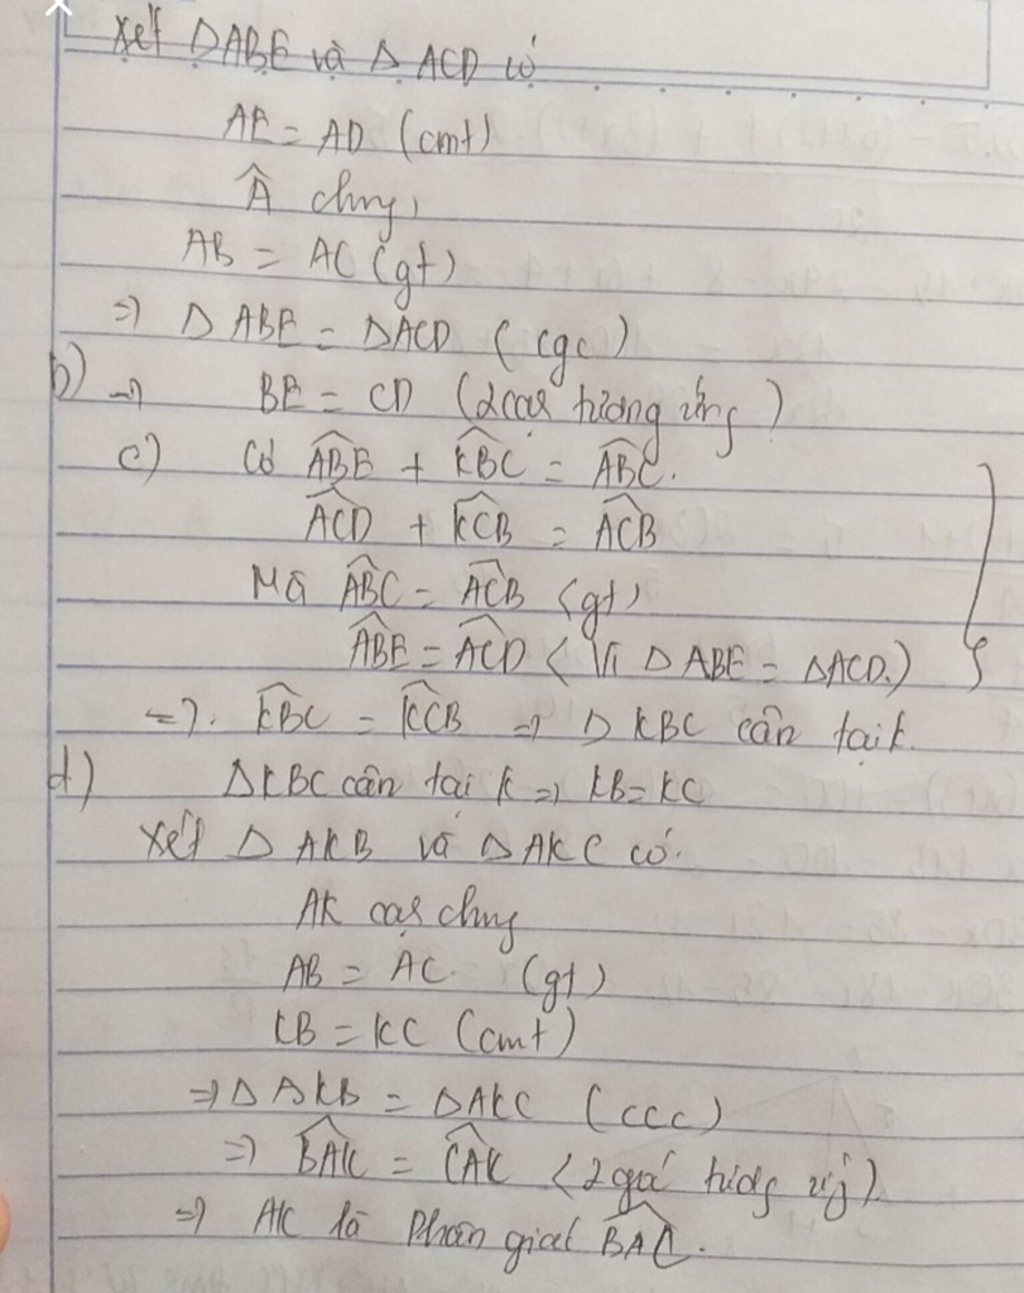 Xét ΔABE và ΔACD có
AE = AD (cmt)
Â chung
AB = AC (gt)
=> ΔABE = ΔACD (cgc)
b) => BE = CD (2 cạh tương ứng)
c) Có ABE + KBC = ABC.
ACD + KCB = ACB
Mà ABC = ACB (gt)
ABE = ACD (Vì ΔABE = ΔACD.)
=> KBC = KCB => ΔKBC cân tại K.
d) ΔKBC cân tại K => KB = KC
Xét ΔAKB và ΔAKC có.
AK cạh chung
AB = AC. (gt)
KB = KC (cmt)
=> ΔAKB = ΔAKC (ccc)
=> BAK = CAK (2 góc tương ứng)
=> AK là Phân giác BAC.